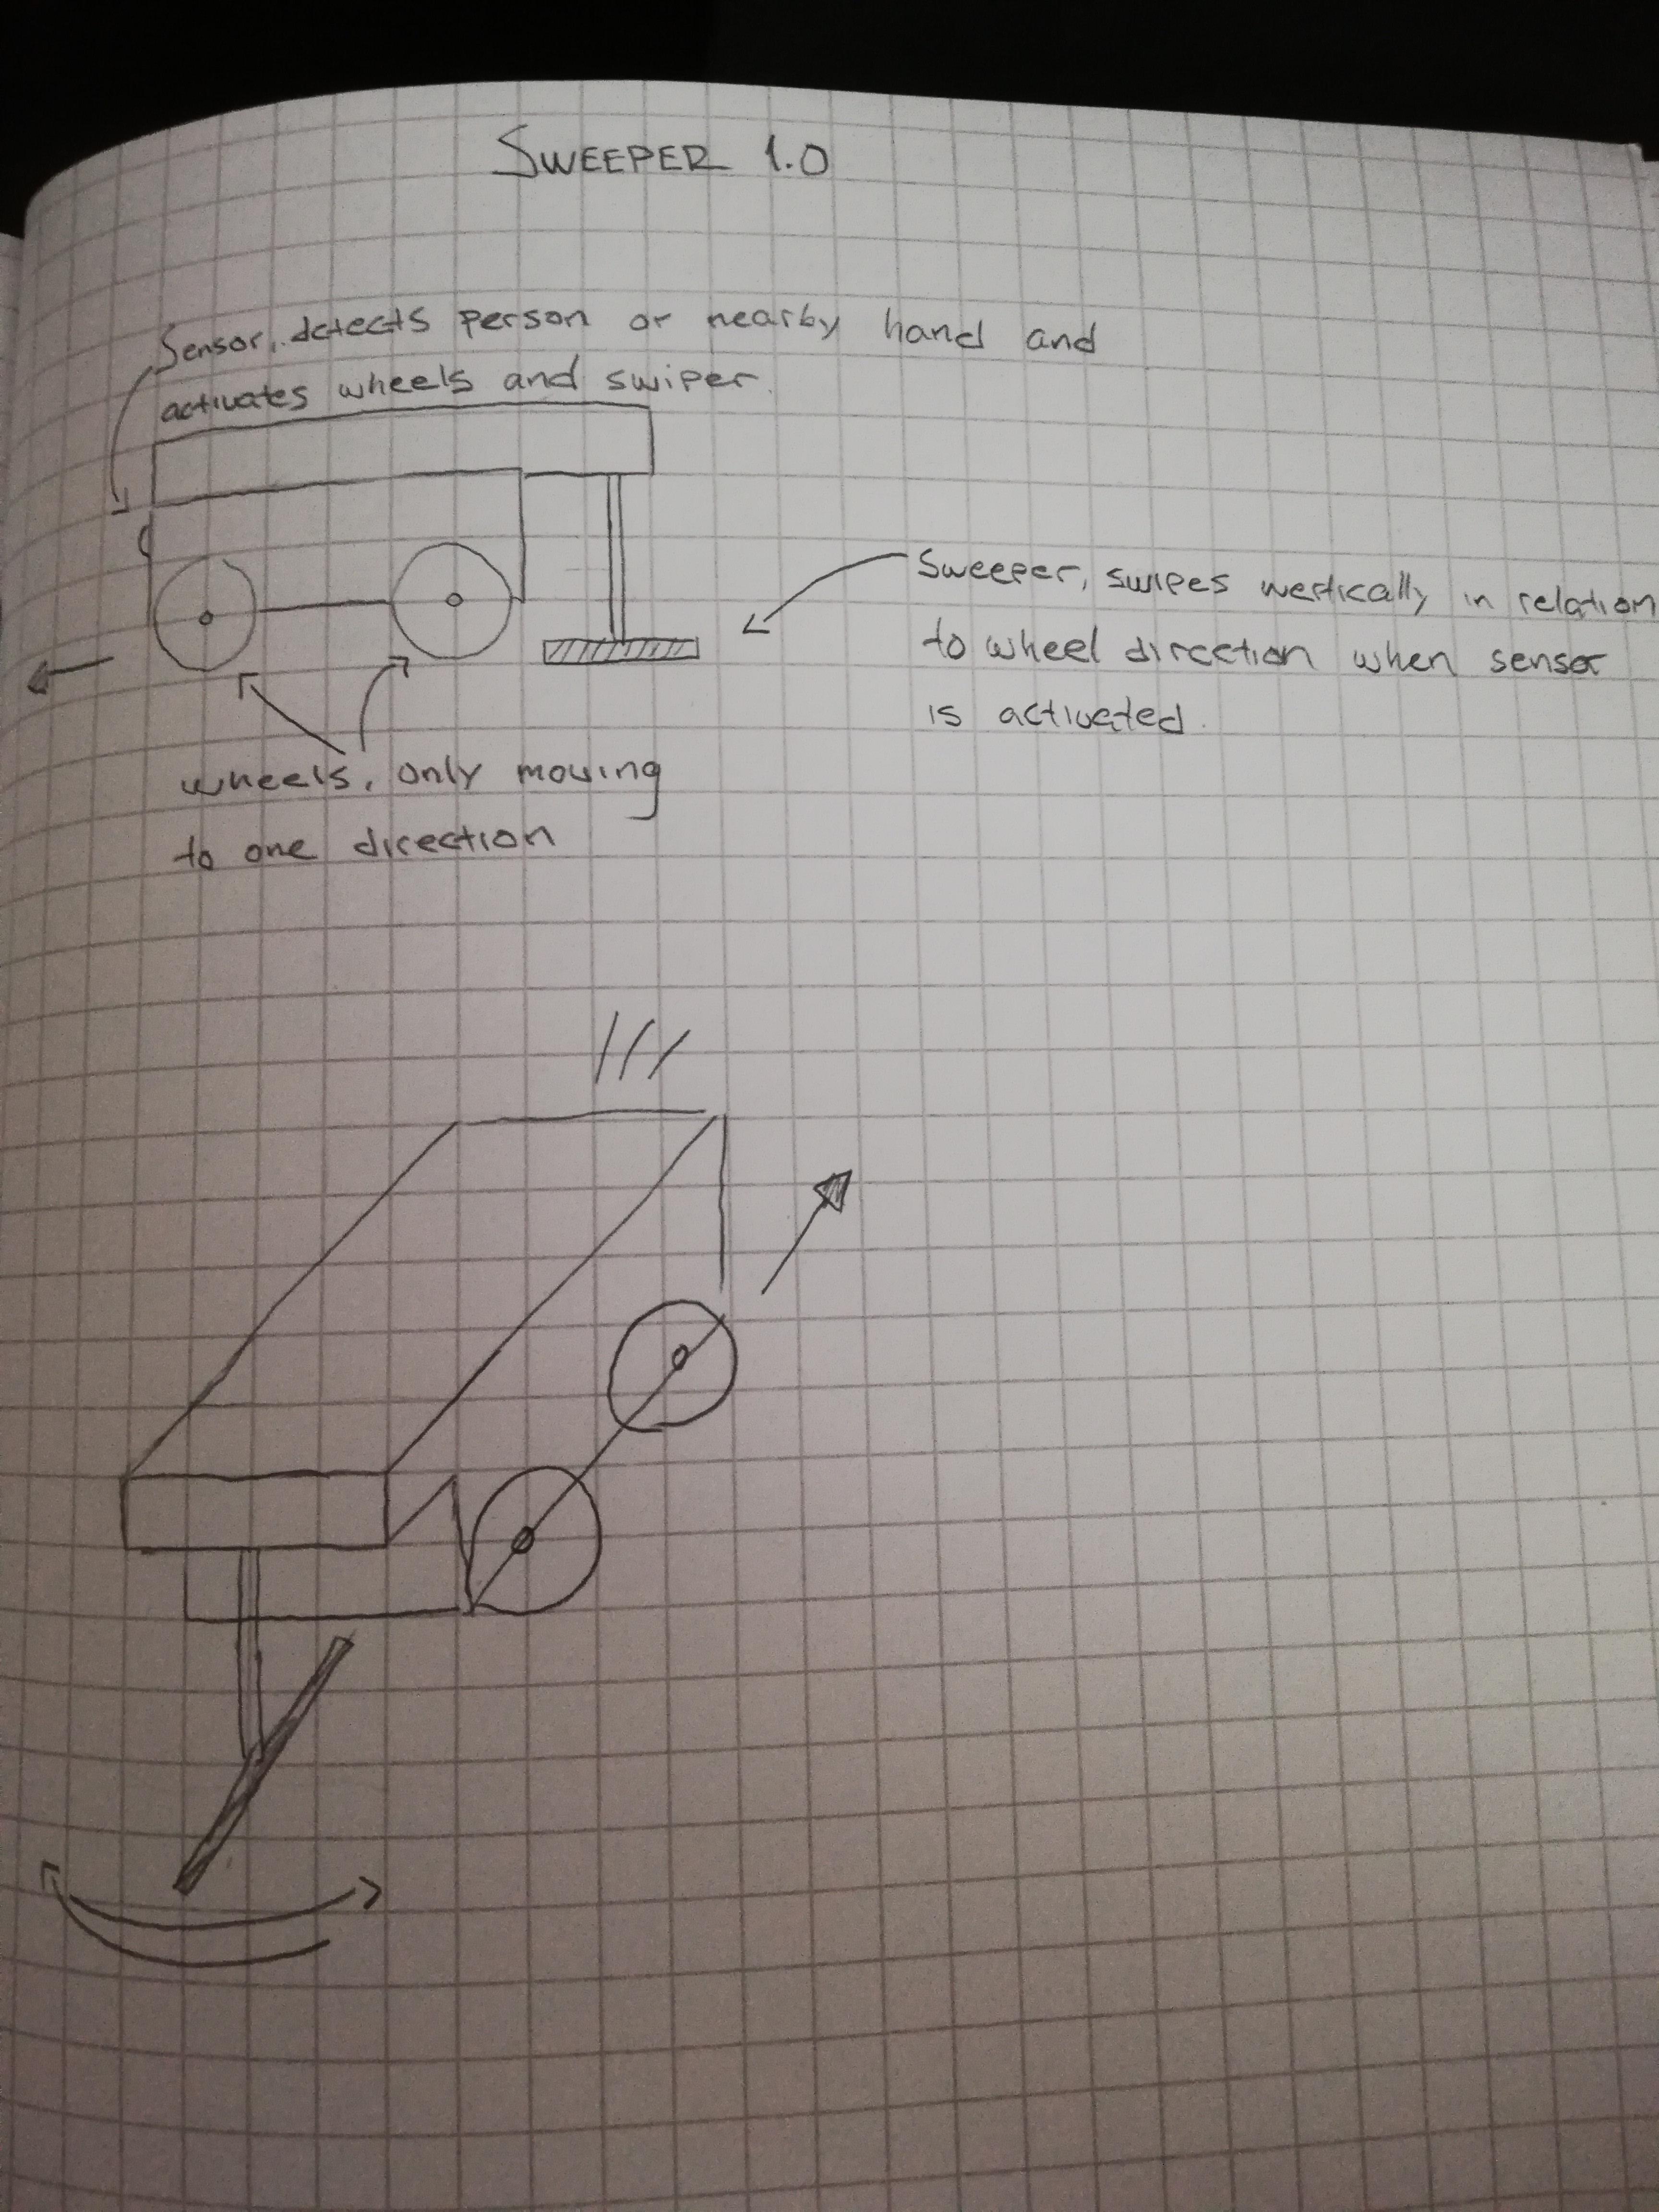 SWEEPER 1.0
Sensor, detects person or nearby hand and
activates wheels and swiper.
Sweeper, swipes vertically in relation
to wheel direction when sensor
is activated.
wheels, only moving
to one direction